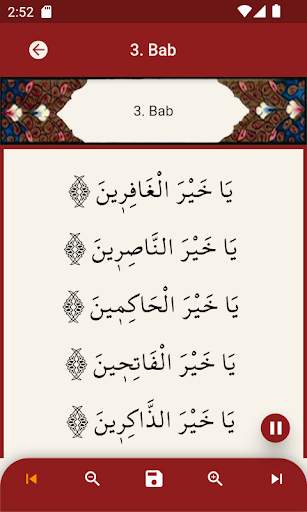 2:52
3. Bab
3. Bab
يَا خَيْرَ الْغَافِرِينَ
يَا خَيْرَ النَّاصِرِينَ
يَا خَيْرَ الْحَاكِمِينَ
يَا خَيْرَ الْفَاتِحِينَ
يَا خَيْرَ الذَّاكِرِينَ